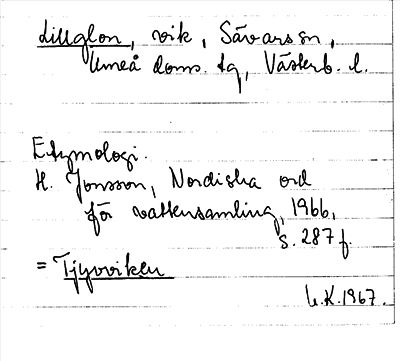 Lillglon, vik, Sävars sn,
Umeå doms. tg, Västerb. l.
Etymologi.
H. Jonsson, Nordiska ord
för vattensamling, 1966,
s. 287 f.
= Tjyvviken
U.K. 1967.